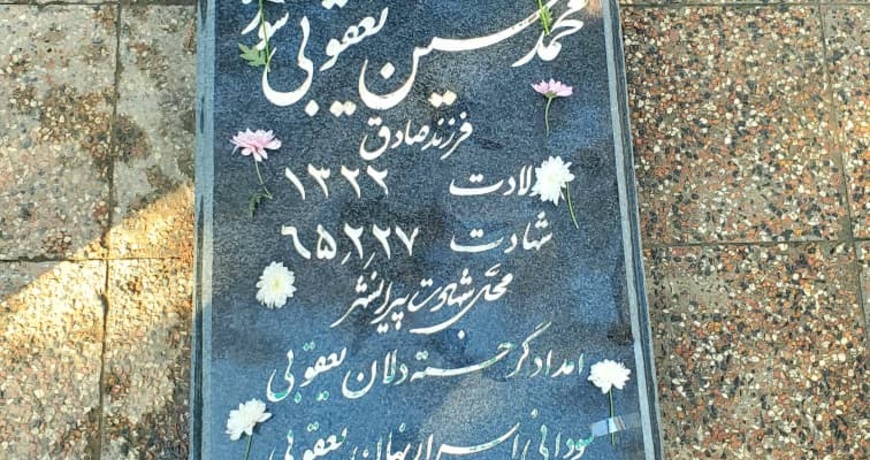 محمد حسین یعقوبی
فرزند صادق
ولادت ۱۳۲۲
شهادت ۶۵٫۲٫۲۷
محل شهادت پیرانشهر
امدادگر خسته دلان یعقوبی
سودائی اسرار نهان یعقوبی